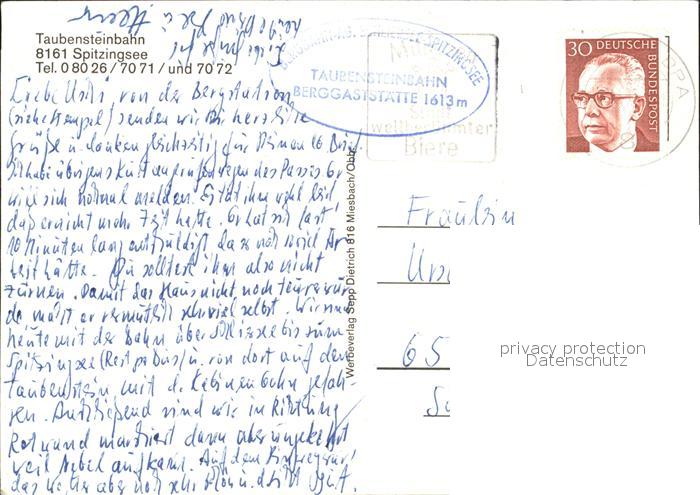 Taubensteinbahn
8161 Spitzingsee
Tel. 0 80 26 / 70 71 / und 70 72
TAUBENSTEINBAHN
BERGGASTSTÄTTE 1613 m
weltberühmter
Biere
30 DEUTSCHE
BUNDESPOST
Werbeverlag Sepp Dietrich 816 Miesbach/Obb.
Liebe Ursi, von der Bergstation
(siehe Stempel) senden wir Dir herzliche
Grüße u. danken gleichzeitig für Deinen Brief.
Ich habe übrigens Kurt angerufen wegen des Passes. Er
will sich nochmal melden. Es tat ihm wohl leid
daß er nicht mehr Zeit hatte. Er hat sich fast
10 Minuten lang entschuldigt, da er noch soviel Ar
beit hätte. Du solltest ihm also nicht
zürnen. Damit das Haus nicht noch teurer wür
de macht er vermutlich sehr viel selbst. Wir sind
heute mit der Bahn über Schliersee bis zum
Spitzingsee (Rest per Bus) u. von dort auf den
Taubenstein mit d. Kabinenbahn gefah-
ren. Anschließend sind wir in Richtung
Rotwand marschiert dann aber umgekehrt
weil Nebel aufkam. Auf dem
das Wetter aber noch sehr schön u. d. Sicht gut.
Fräulein
65
privacy protection
Datenschutz